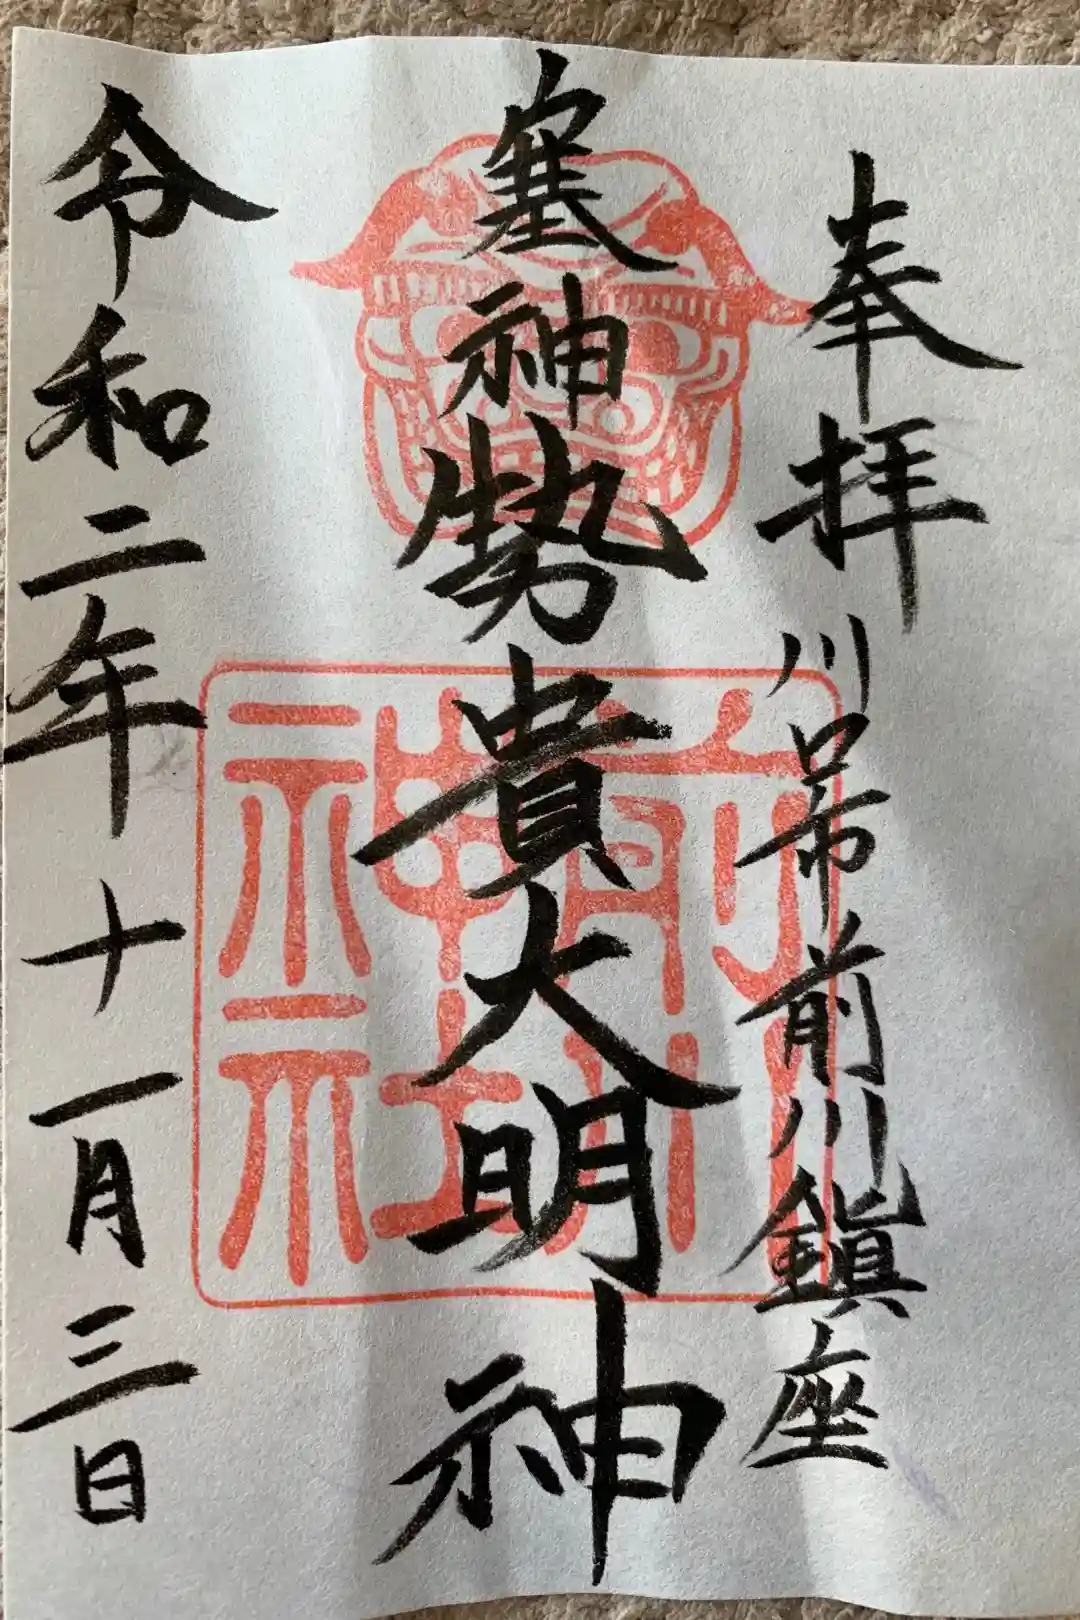 奉拝 川口市前川鎮座
塞神勢貴大明神
令和二年十一月三日
前川
神社